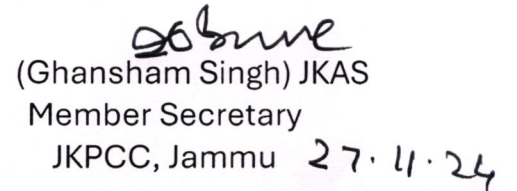 (Ghansham Singh) JKAS
Member Secretary
JKPCC, Jammu 27.11.24